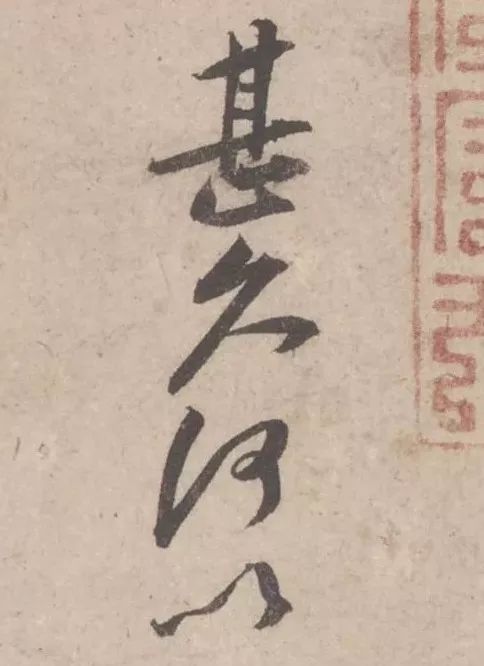 甚久何以